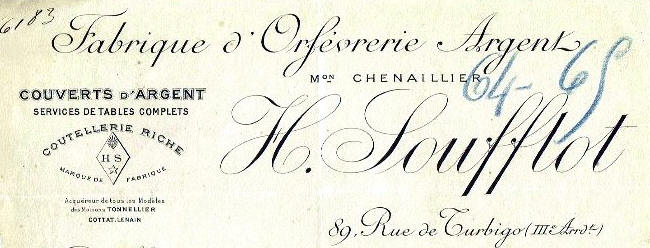 6183
Fabrique d'Orfévrerie Argent
Mon CHENAILLIER
64-65
H. Soufflot
COUVERTS D'ARGENT
SERVICES DE TABLES COMPLETS
COUTELLERIE RICHE
H S
MARQUE DE FABRIQUE
Acquéreur de tous les Modèles
des Maisons TONNELLIER
COTTAT. LENAIN
89, Rue de Turbigo (IIIe Ardt.)